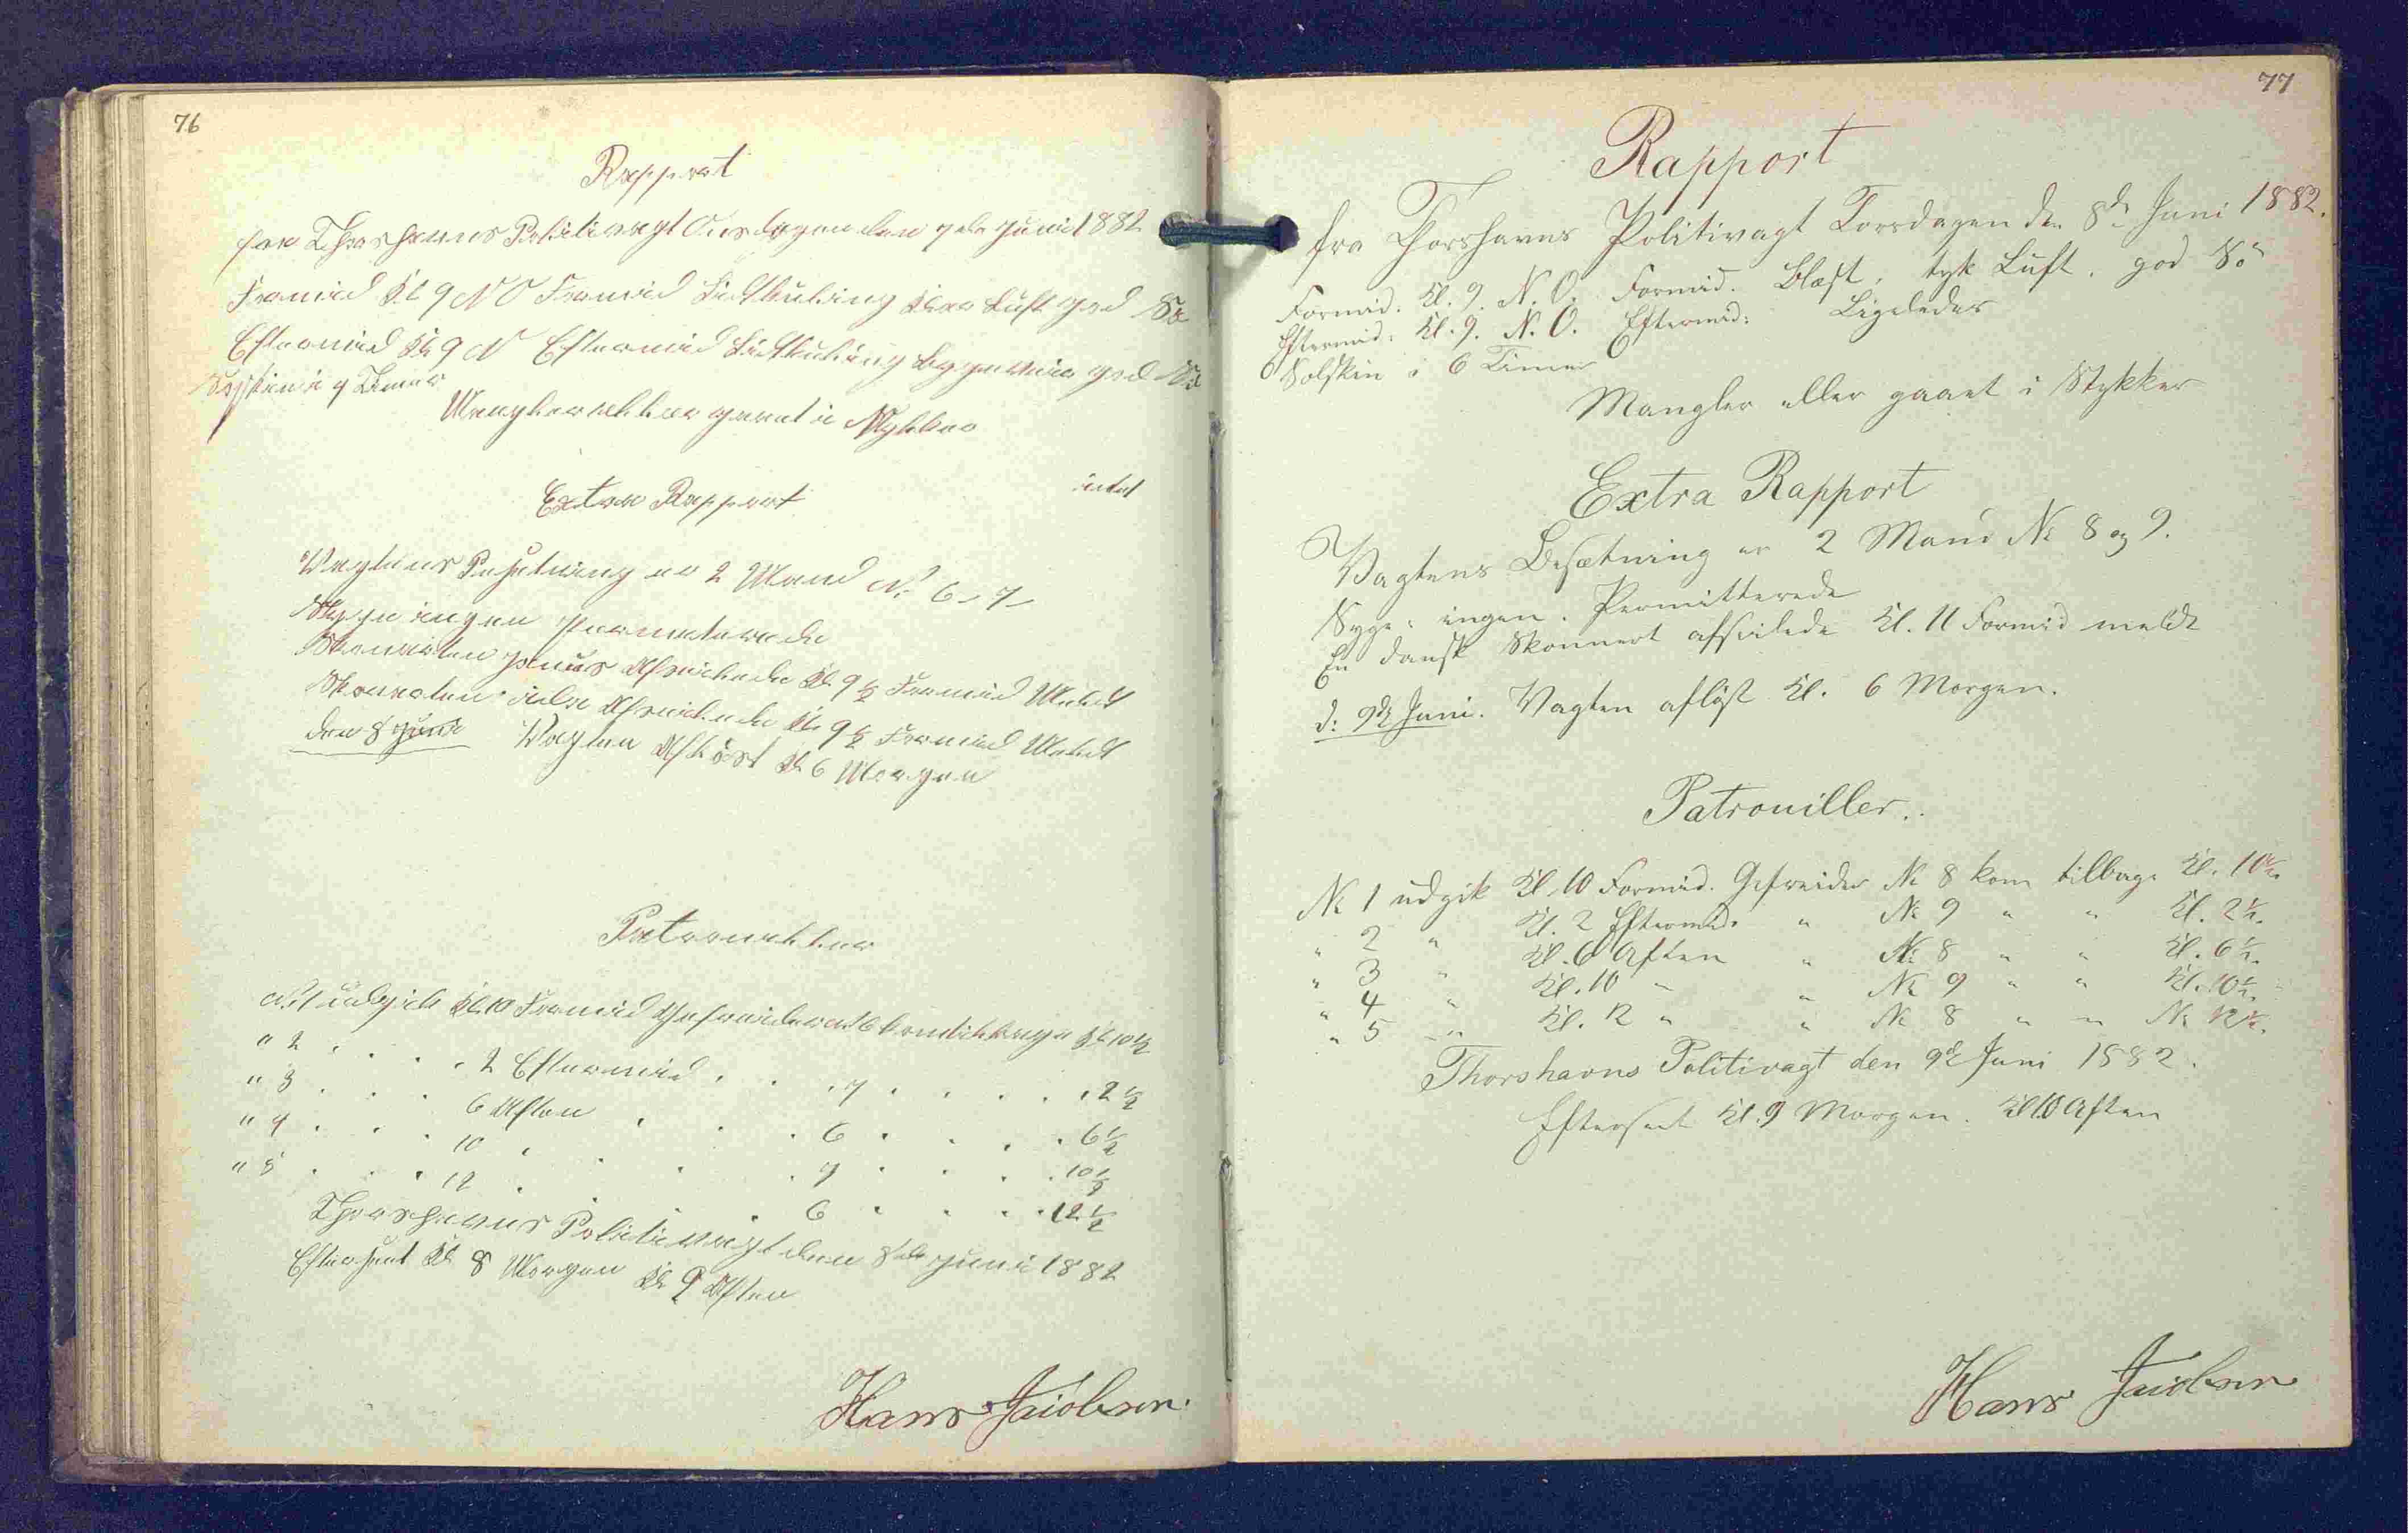 76
Rapport
fra Thorshavns Politivagt Onsdagen den 7de Juni 1882
Formid Kl 9 NO Formid Lidtkuling klar Luft god Sø
Eftermid Kl 9 N Eftermid Lidtkuling god Sø
Solskin i 7 Timer
Mangler eller gaaet i Stykker
intet
Extra Rapport
Vagtens Besetning er 2 Mand No 6 - 7 -
Syge ingen Permiterede
Skonnerten Afseilede Kl 9½ Formid Meldt
Skonnerten Afseilede Kl 9½ Formid Meldt
den 8 Juni Vagten Afløst Kl 6 Morgen
Patrouiller
No 1 udgik Kl 10 Formid Gefreider No 6 kom tilbage Kl 10½
" 2 " " " 2 Eftermid " " " 7 " " " " 2½
" 3 " " " 6 Aften " " " 6 " " " 6½
" 4 " " " 10 " " " " 7 " " " 10½
" 5 " " " 12 " " " " 6 " " " 12½
Thorshavns Politivagt den 8de Juni 1882
Efterseet Kl 8 Morgen Kl 9 Aften
Hans Jacobsen.
77
Rapport
fra Thorshavns Politivagt Torsdagen den 8de Juni 1882.
Formid. Kl. 9. N.O. Formid. Blæst, tyk Luft, god Sø
Eftermid: Kl. 9. N.O. Eftermid: Ligeledes
Solskin i 6 Timer
Mangler eller gaaet i Stykker
Extra Rapport
Vagtens Besætning er 2 Mand No 8 og 9.
Syge: ingen. Permitterede
En dansk Skonnert afseilede Kl. 11 Formid meldt
d: 9de Juni. Vagten afløst Kl. 6 Morgen.
Patrouiller.
No 1 udgik Kl. 10 Formid. Gefreider No 8 kom tilbage Kl. 10½
" 2 " Kl. 2 Eftermid. " No 9 " " Kl. 2½.
" 3 " Kl. 6 Aften " No 8 " " Kl. 6½.
" 4 " Kl. 10 " " No 9 " " Kl. 10½.
" 5 " Kl. 12 " " No 8 " " No 12½.
Thorshavns Politivagt den 9de Juni 1882.
Efterseet Kl. 9 Morgen. Kl 10 Aften
Hans Jacobsen